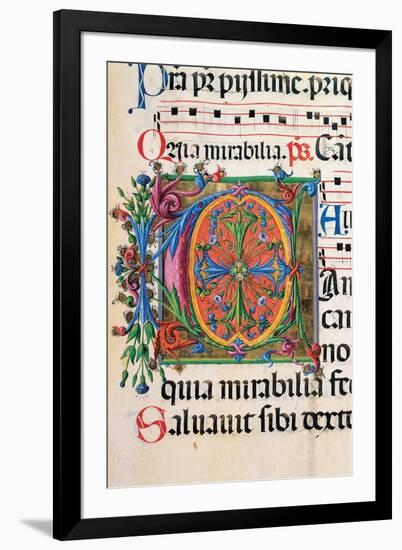 Pr̄a pr̄ pijssime. priq
Quia mirabilia. p̄s. Cāt
A
An
can
no
quia mirabilia fe
Saluauit sibi dexte